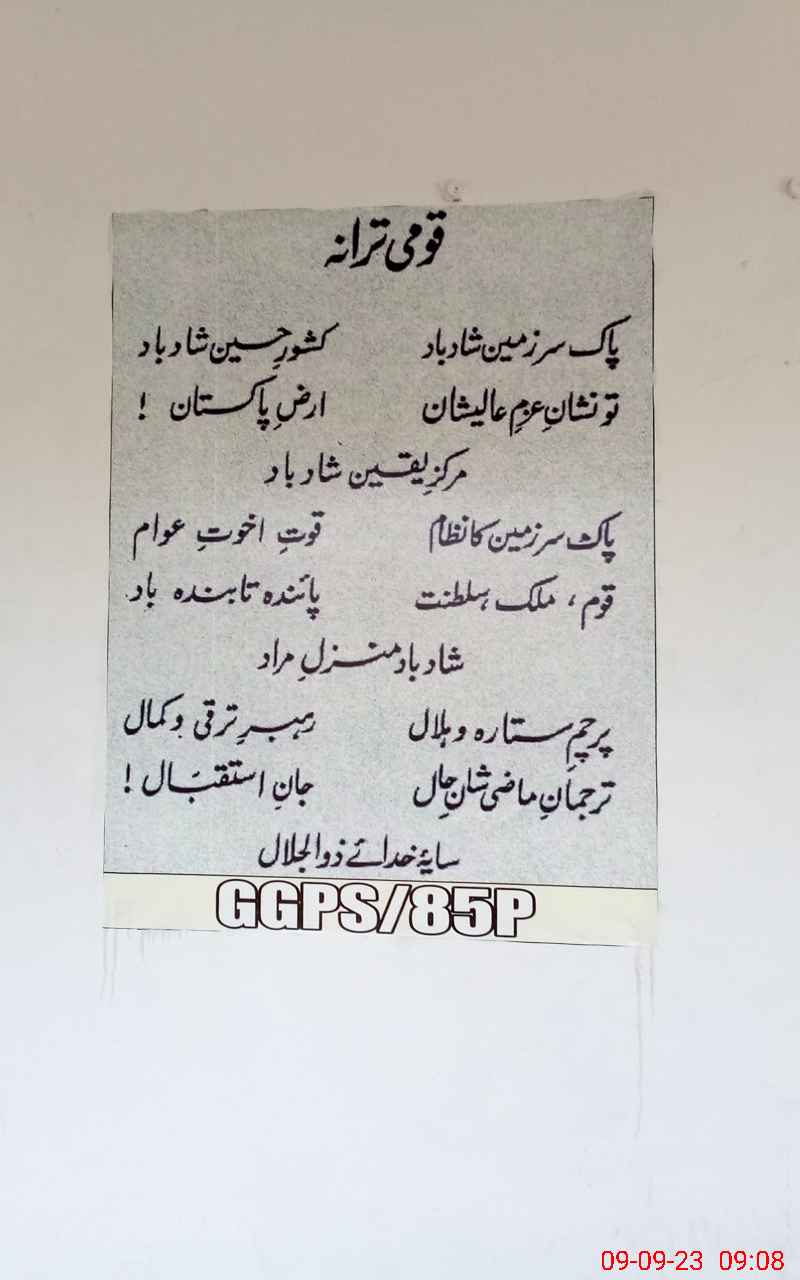 قومی ترانہ
پاک سرزمین شاد باد کشورِ حسین شاد باد
تو نشانِ عزمِ عالیشان ارضِ پاکستان !
مرکزِ یقین شاد باد
پاک سرزمین کا نظام قوتِ اخوتِ عوام
قوم ، ملک ، سلطنت پائندہ تابندہ باد
شاد باد منزلِ مراد
پرچمِ ستارہ و ہلال رہبرِ ترقی و کمال
ترجمانِ ماضی شانِ حال جانِ استقبال !
سایۂ خدائے ذوالجلال
GGPS/85P
09-09-23 09:08